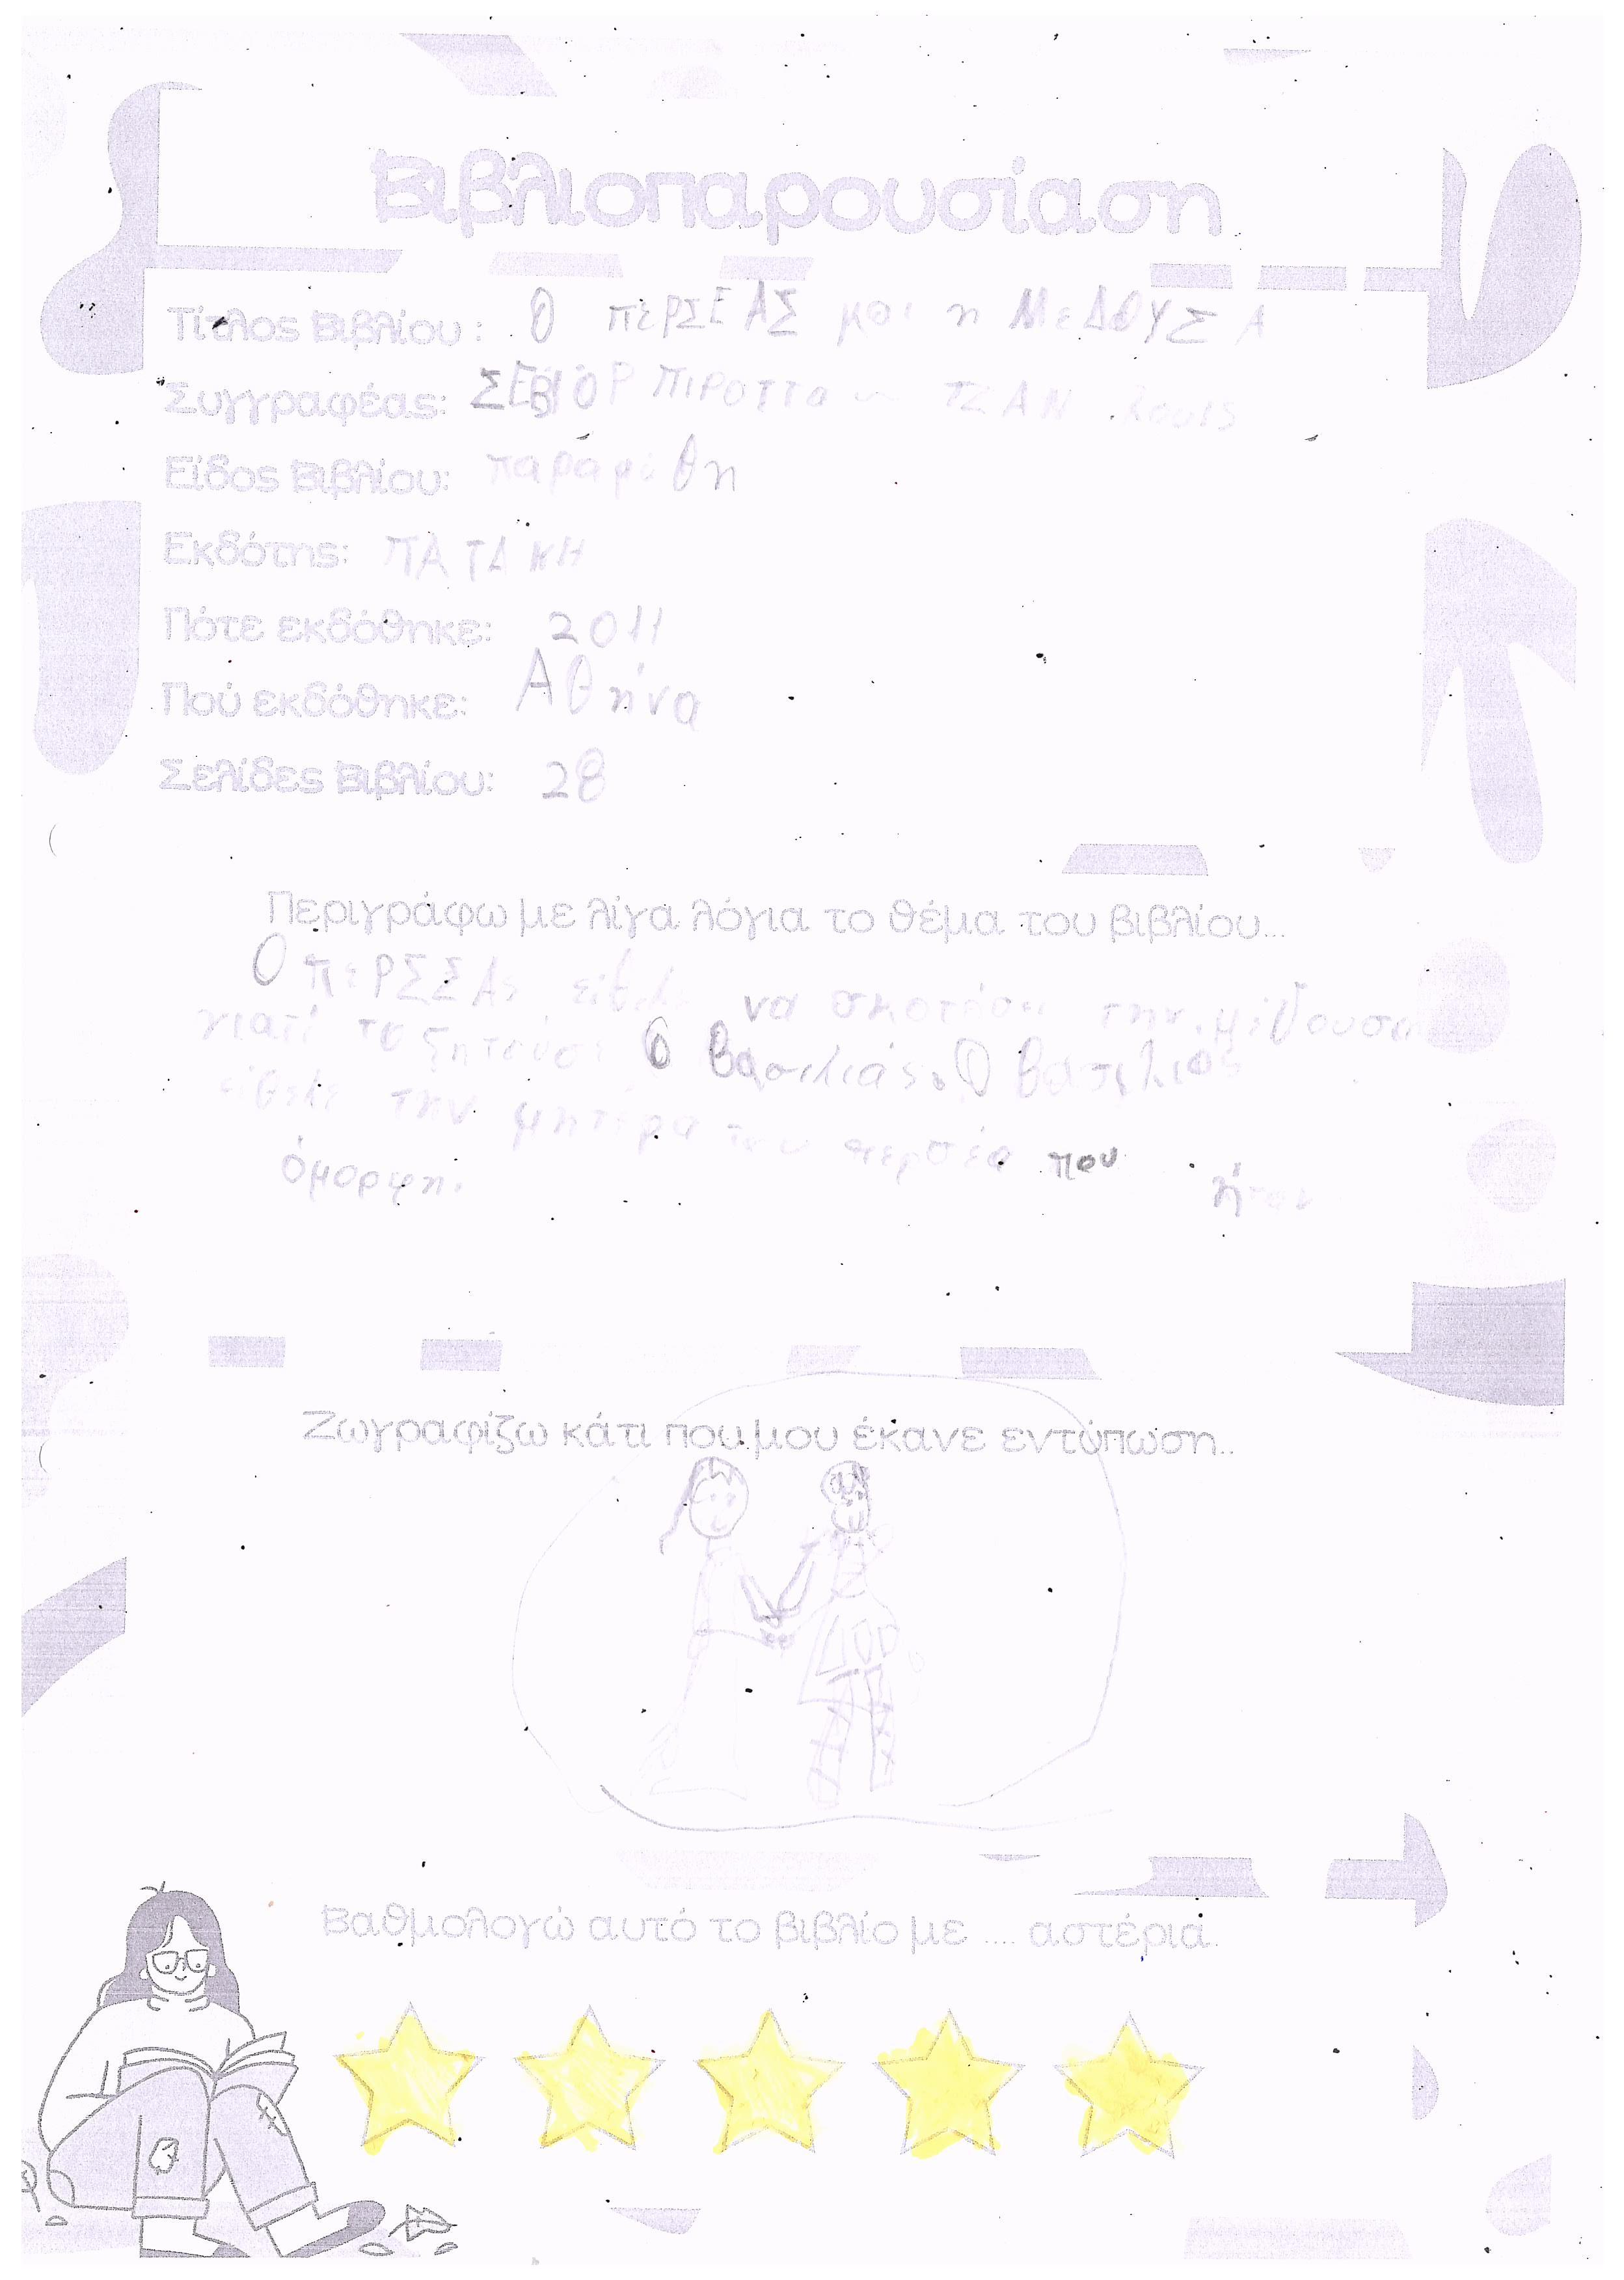 Βιβλιοπαρουσίαση
Τίτλος Βιβλίου: Ο πέΡΣΕΑΣ μαι η ΜεΔΟΥΣΑ
Συγγραφέας: ΣΕΒΙΟΡ ΠΙΡΟΤΤΑ ΤΖΑΝ λουις
Είδος Βιβλίου: παραμύθη
Εκδότης: ΠΑΤΑΚΗ
Πότε εκδόθηκε: 2011
Πού εκδόθηκε: Αθήνα
Σελίδες Βιβλίου: 28
Περιγράφω με λίγα λόγια το θέμα του βιβλίου...
Ο πεΡΣΣΑς είθελε να σκοτόσει την μέδουσα
γιατί το ζητούσε ο βασιλιάς. Ο βασιλιάς
είθελε την μητέρα του περσέα που ήταν
όμορφη.
Ζωγραφίζω κάτι που μου έκανε εντύπωση..
Βαθμολογώ αυτό το βιβλίο με .... αστέρια.